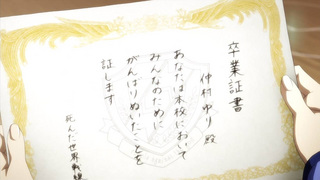 卒業証書
仲村ゆり殿
あなたは本校において
みんなのために
がんばりぬいたことを
証します
死んだ世界戦線